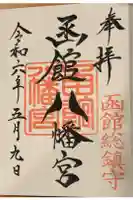 奉拝
函館総鎮守
函館八幡宮
令和六年五月九日